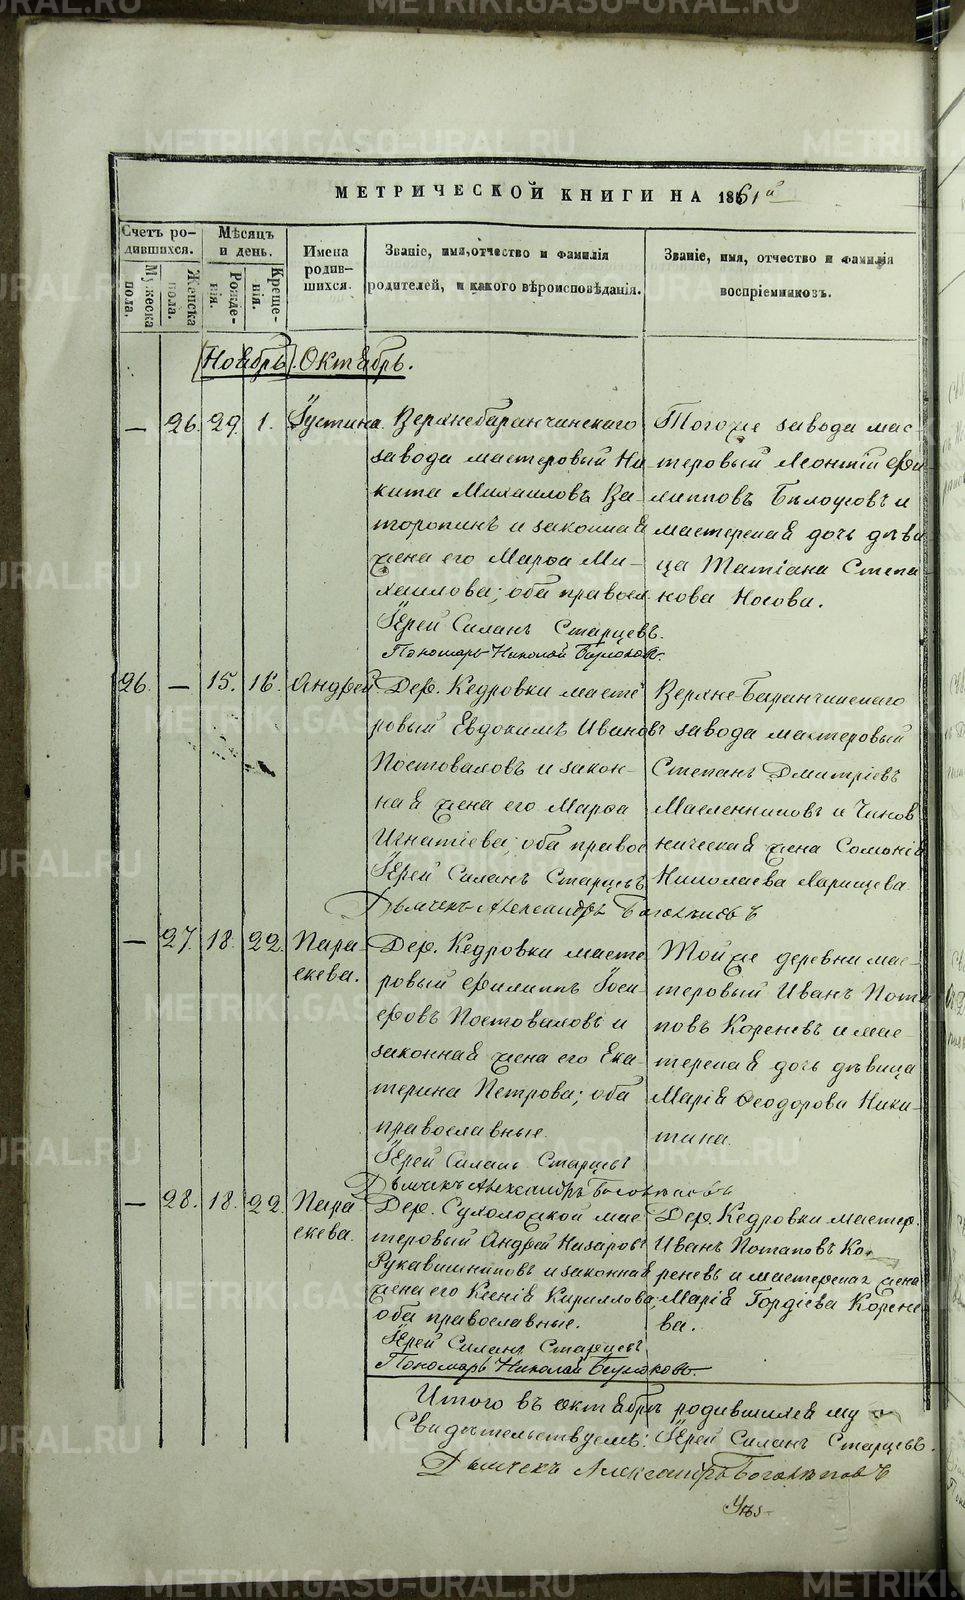 METRIKI.GASO-URAL.RU
МЕТРИЧЕСКОЙ КНИГИ НА 1861й
Счетъ родившихся.
Мужеска пола.
Женска пола.
Мѣсяцъ и день.
Рожденія.
Крещенія.
Имена родившихся.
Званіе, имя, отчество и фамилія родителей, и какого вѣроисповѣданія.
Званіе, имя, отчество и фамилія воспріемниковъ.
[Ноябрь]. Октябрь.
— 26. 29. 1. Іустина.
Верхнебаранчинскаго
завода мастеровый Ни
кита Михаиловъ Ва
торопинъ и законная
жена его Марѳа Ми-
хаилова; оба правосл
Іерей Силанъ Старцевъ.
Пономарь Николай
Тогоже завода мас-
теровый Леонтій Фи-
липповъ Бѣлоусовъ и
мастерская дочь дѣви
ца Татіана Степа
нова Носова.
26. — 15. 16. Андрей
Дер. Кедровки масте
ровый Евдокимъ Ивановъ
Постоваловъ и закон-
ная жена его Марѳа
Игнатіева; оба правос
Іерей Силанъ Старцевъ
Дьячекъ Александръ
Верхне-Баранчинскаго
завода мастеровый
Степанъ Дмитріевъ
Масленниковъ и Чинов
ническая жена Соломія
Николаева Ларищева.
— 27. 18. 22. Пара-
скева.
Дер. Кедровки масте
ровый Филиппъ Іоси-
фовъ Постоваловъ и
законная жена его Ека-
терина Петрова; оба
православные.
Іерей Силанъ Старцевъ
Дьячекъ Александръ
Тойже деревни мас-
теровый Иванъ Пота
повъ Кореневъ и мас-
терская дочь дѣвица
Марія Ѳеодорова Ники-
тина.
— 28. 18. 22. Пара
скева.
Дер. Сухоложкой мас
теровый Андрей Назаровъ
Рукавишниковъ и законная
жена его Ксенія Кириллова,
оба православные.
Іерей Силанъ Старцевъ
Пономарь Николай
Дер. Кедровки мастер.
Иванъ Потаповъ Ко-
реневъ и мастерская жена
Марія Гордіева Корене-
ва.
Итого въ октябрѣ родившихся му
Свидѣтельствуемъ: Іерей Силанъ Старцевъ.
Дьячекъ Александръ